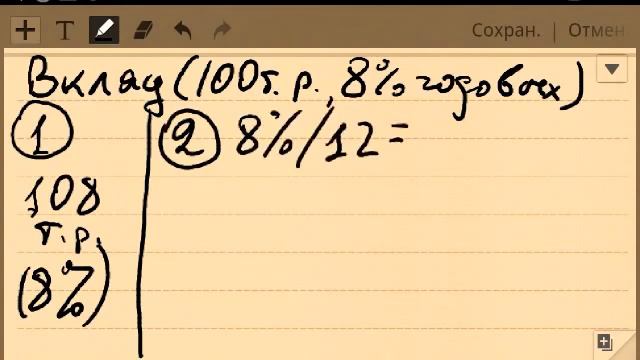 Сохран. | Отмен
Вклад (100т.р., 8% годовых)
1
108
т.р.
(8%)
2 8%/12=